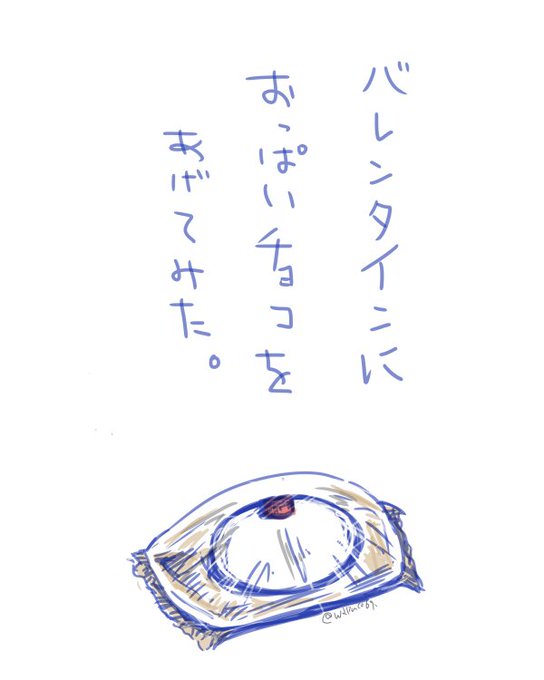 バレンタインに
おっぱいチョコを
あげてみた。